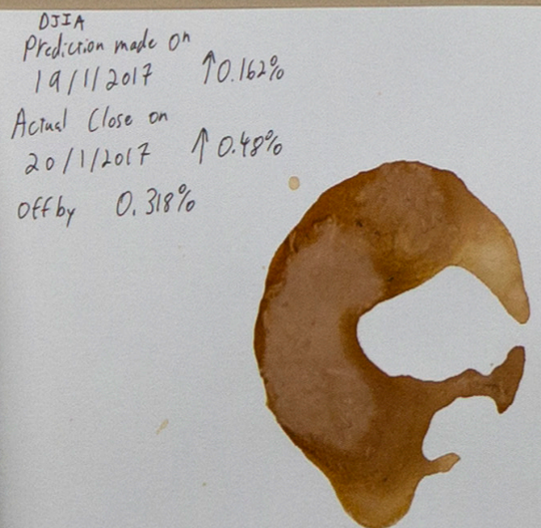 DJIA
Prediction made on
19/1/2017 ↑0.162%
Actual Close on
20/1/2017 ↑ 0.48%
Off by 0.318%